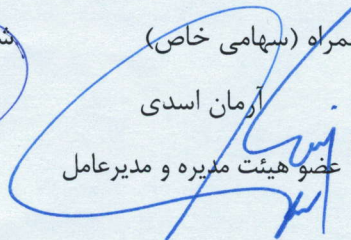 همراه (سهامی خاص)
آرمان اسدی
عضو هیئت مدیره و مدیرعامل